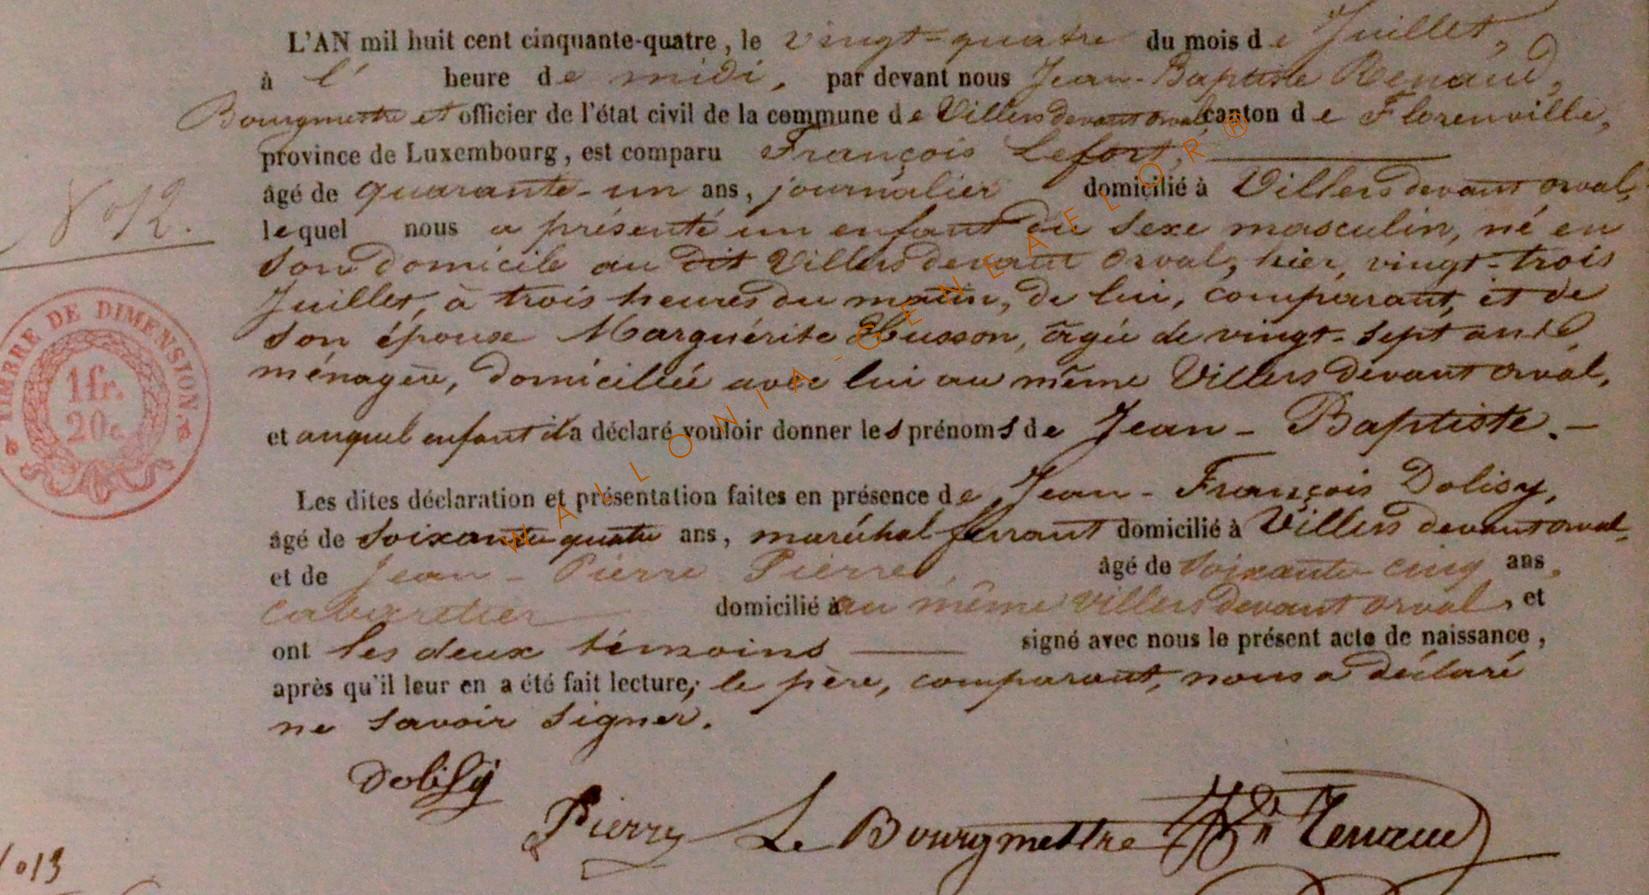 L'AN mil huit cent cinquante-quatre, le vingt-quatre du mois de Juillet,
à l' heure de midi, par devant nous Jean-Baptiste Renaud,
Bourgmestre et officier de l'état civil de la commune de Villers devant orval, canton de Florenville,
province de Luxembourg, est comparu François Lefort,
âgé de quarante-un ans, journalier domicilié à Villers devant orval,
N° 12.
lequel nous a présenté un enfant du sexe masculin, né en
son domicile au dit Villers devant Orval, hier, vingt-trois
Juillet, à trois heures du matin, de lui, comparant, et de
son épouse Marguérite Husson, âgée de vingt-sept ans,
ménagère, domiciliée avec lui au même Villers devant orval,
TIMBRE DE DIMENSION.
1fr.
20c
et auquel enfant il a déclaré vouloir donner les prénoms de Jean-Baptiste.-
Les dites déclaration et présentation faites en présence de Jean-François Dolisy,
âgé de soixante quatre ans, maréchal ferrant domicilié à Villers devant orval
et de Jean-Pierre Pierre, âgé de soixante-cinq ans,
cabaretier domicilié au même villers devant orval, et
ont les deux témoins signé avec nous le présent acte de naissance,
après qu'il leur en a été fait lecture; le père, comparant, nous a déclaré
ne savoir signer.
Dolisy
Pierre Le Bourgmettre JBn Renaud
N° 13
WALLONIA-GENEAFELOR®